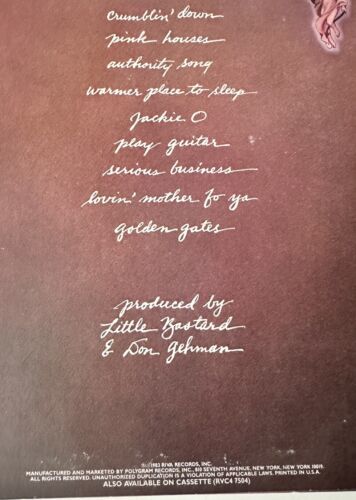 crumblin' down
pink houses
authority song
warmer place to sleep
Jackie O
play guitar
serious business
lovin' mother fo ya
golden gates
produced by
Little Bastard
& Don Gehman
1983 RIVA RECORDS, INC.
MANUFACTURED AND MARKETED BY POLYGRAM RECORDS, INC., 810 SEVENTH AVENUE, NEW YORK, NEW YORK 10019.
ALL RIGHTS RESERVED. UNAUTHORIZED DUPLICATION IS A VIOLATION OF APPLICABLE LAWS. PRINTED IN U.S.A.
ALSO AVAILABLE ON CASSETTE (RVC4 7504)